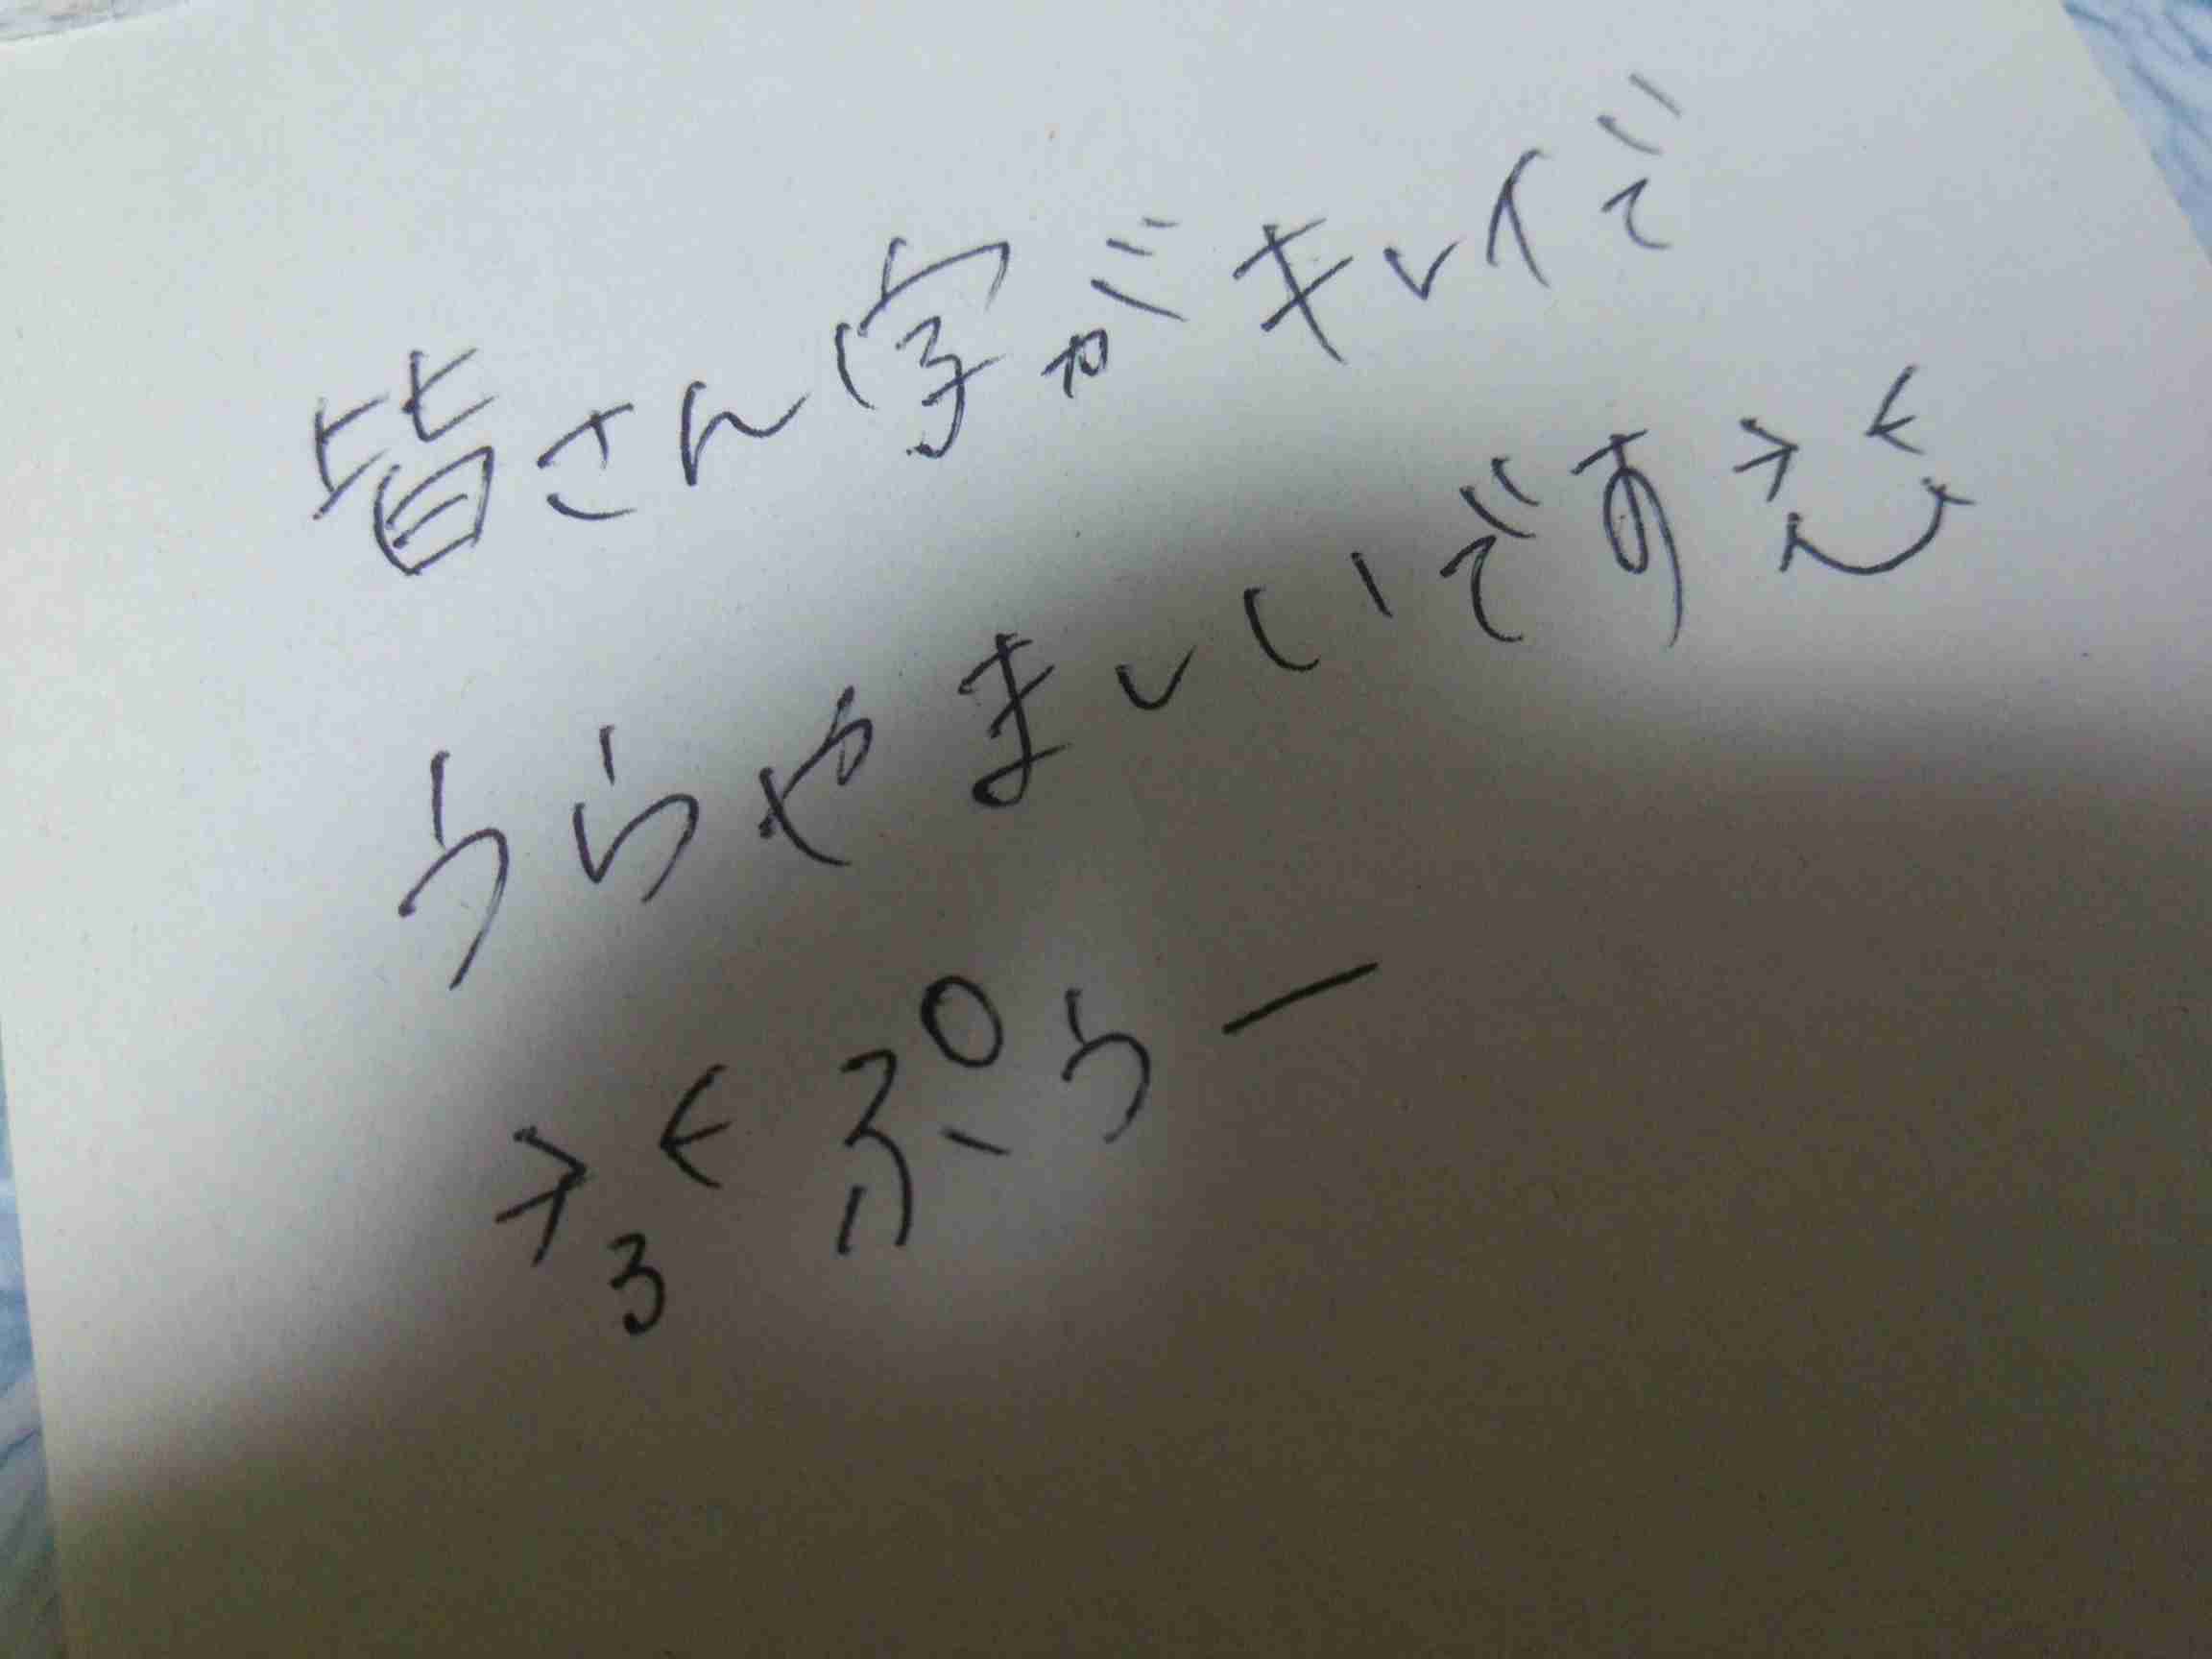 皆さん字がキレイで
うらやましいです
ぷぅー